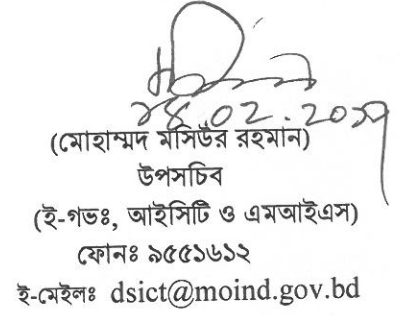 ২৪.০২.২০১৯
(মোহাম্মদ মাসিউর রহমান)
উপসচিব
(ই-গভঃ, আইসিটি ও এমআইএস)
ফোনঃ ৯৫৫১৬১২
ই-মেইলঃ dsict@moind.gov.bd